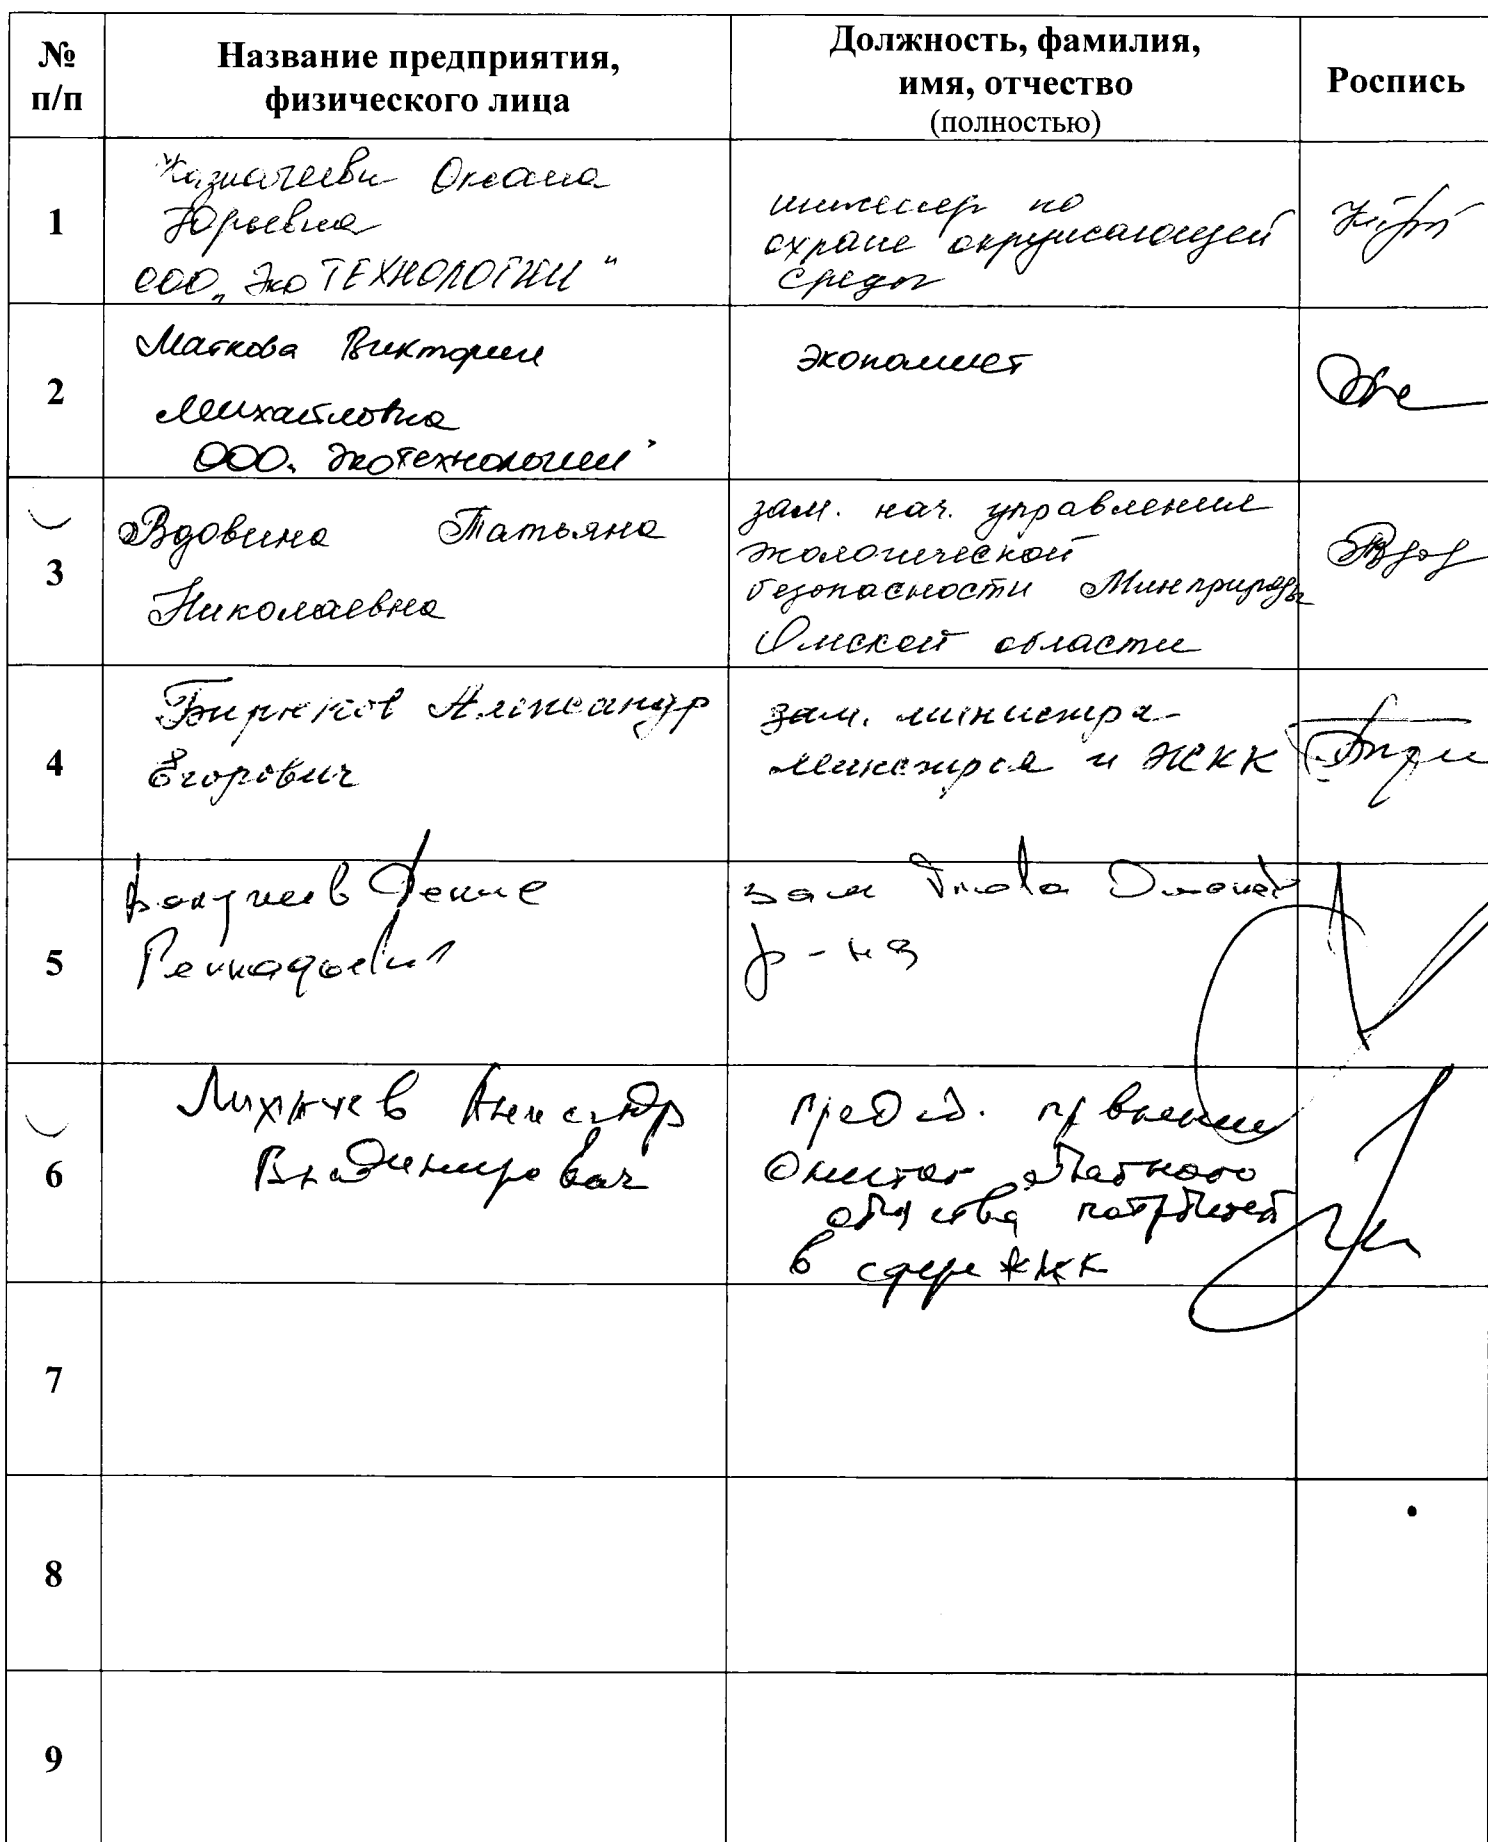 № п/п
Название предприятия, физического лица
Должность, фамилия, имя, отчество (полностью)
Роспись
1
Казначеева Оксана
Юрьевна
ООО „ЭкоТЕХНОЛОГИИ"
инженер по
охране окружающей
среды
2
Маткова Виктория
Михайловна
ООО. Экотехнологии"
экономист
3
Вдовина Татьяна
Николаевна
зам. нач. управления
экологической
безопасности Минприроды
Омской области
4
Бирюков Александр
Егорович
зам. министра
министроя и ЖКК
5
Денис
Геннадьевич
зам Омского
р-на
6
Лихачев Александр
Владимирович
председ. правления
Омского областного
общества потребителей
в сфере ЖКК
7
8
9